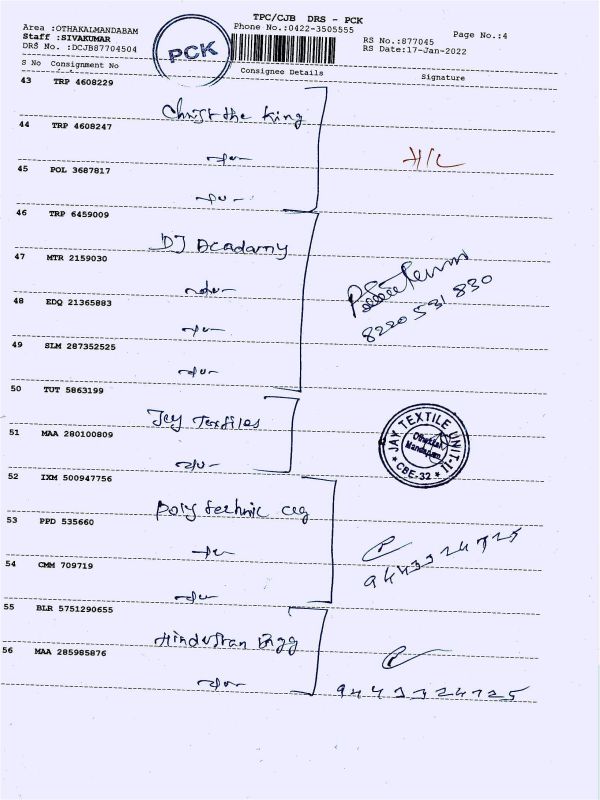 TPC/CJB DRS - PCK
Area :OTHAKALMANDABAM
Phone No.:0422-3505555
Page No.:4
Staff :SIVAKUMAR
RS No.:877045
DRS No. :DCJB87704504
RS Date:17-Jan-2022
PCK
S No Consignment No Consignee Details Signature
43 TRP 4608229
Christ the King
44 TRP 4608247
H/C
45 POL 3687817
46 TRP 6459009
DJ Acadamy
47 MTR 2159030
48 EDQ 21365883
8220 531 830
49 SLM 287352525
50 TUT 5863199
Jey Textiles
JAY TEXTILE UNIT-II
Othakkal
Mandapam
* CBE-32 *
51 MAA 280100809
52 IXM 500947756
Poly technic clg
53 PPD 535660
9443324725
54 CMM 709719
55 BLR 5751290655
Hindustan Engg
56 MAA 285985876
9443324725